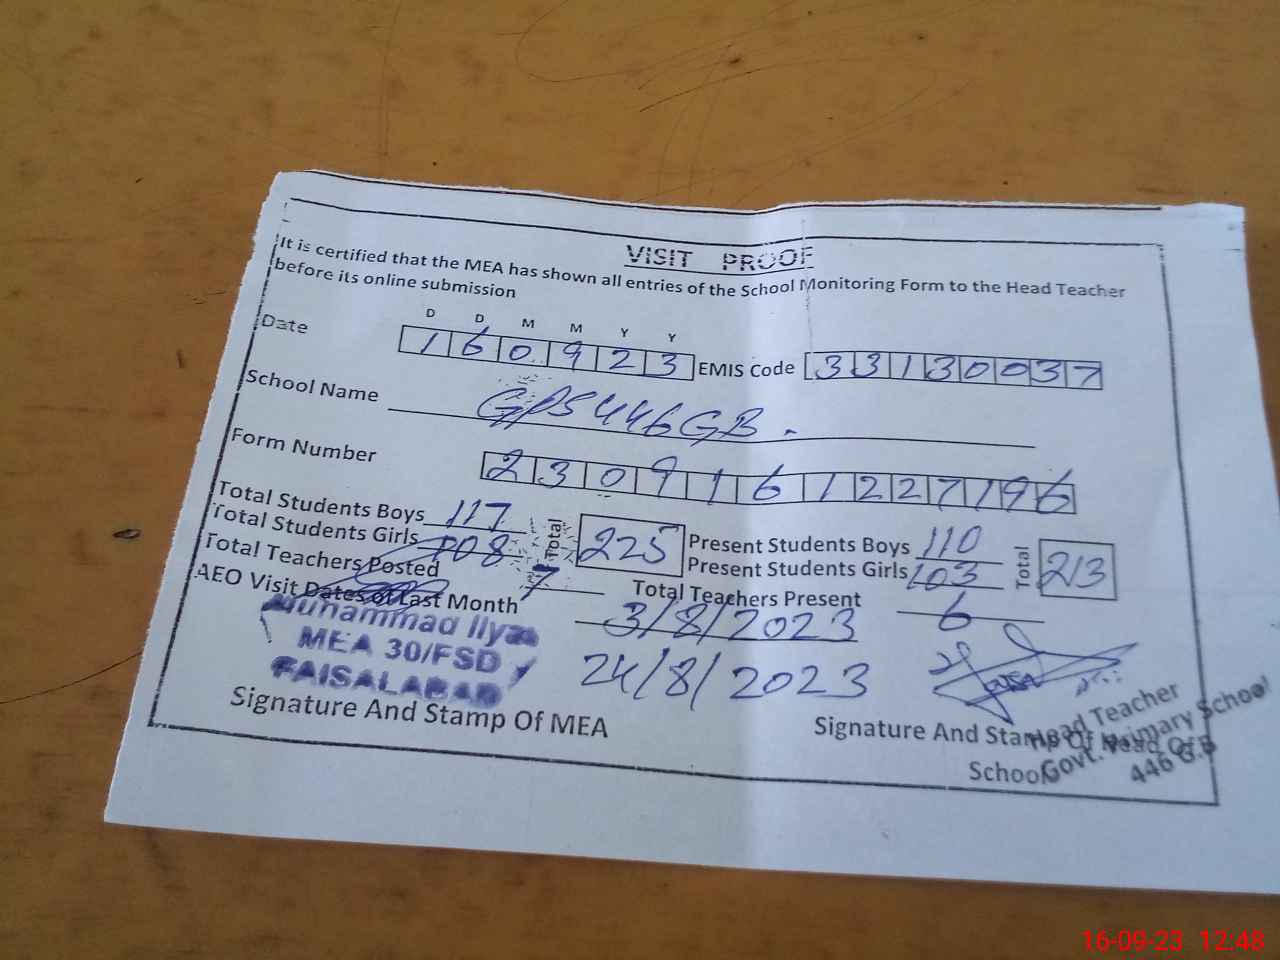 VISIT PROOF
It is certified that the MEA has shown all entries of the School Monitoring Form to the Head Teacher
before its online submission
D D M M Y Y
Date 160923 EMIS Code 33130037
School Name GPS 446 GB.
Form Number 230916122796
Total Students Boys 117 Total 225 Present Students Boys 110 Total 213
Total Students Girls 108 Present Students Girls 103
Total Teachers Posted 7 Total Teachers Present 6
AEO Visit Dates of Last Month 3/8/2023
24/8/2023
Muhammad Ilyas
MEA 30/FSD
FAISALABAD
Signature And Stamp Of MEA
Signature And Stamp Of Head Of
School
Head Teacher
Govt. Primary School
446 G.B
16-09-23 12:48